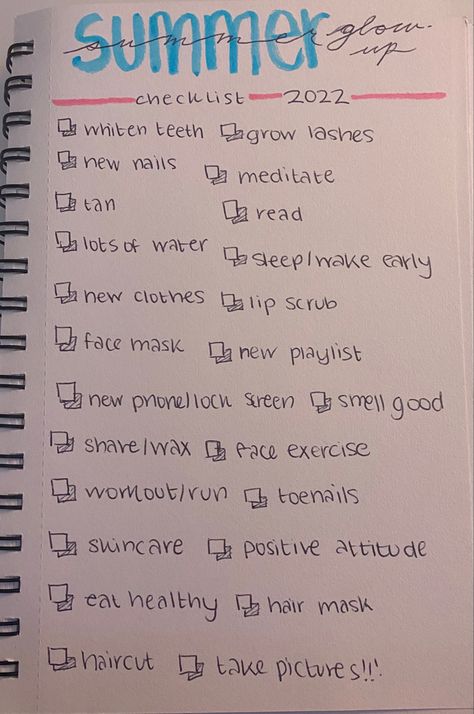 summer
summer glow-up
checklist 2022
whiten teeth grow lashes
new nails meditate
tan read
lots of water sleep/wake early
new clothes lip scrub
face mask new playlist
new phone/lock screen smell good
share/wax face exercise
workout/run toenails
skincare positive attitude
eat healthy hair mask
haircut take pictures!!!